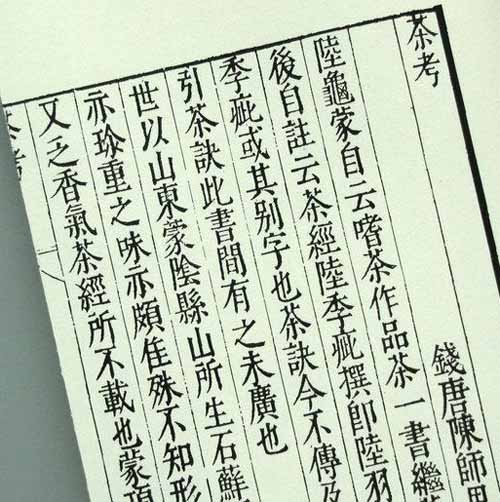 茶考
錢唐陳師
陸龜蒙自云嗜茶作品茶一書繼
後自註云茶經陸季疵撰即陸羽
季疵或其别字也茶訣今不傳及
引茶訣此書間有之未廣也
世以山東蒙陰縣山所生石蘇
亦珍重之味亦頗佳殊不知形
又之香氣茶經所不載也蒙頂
茶考